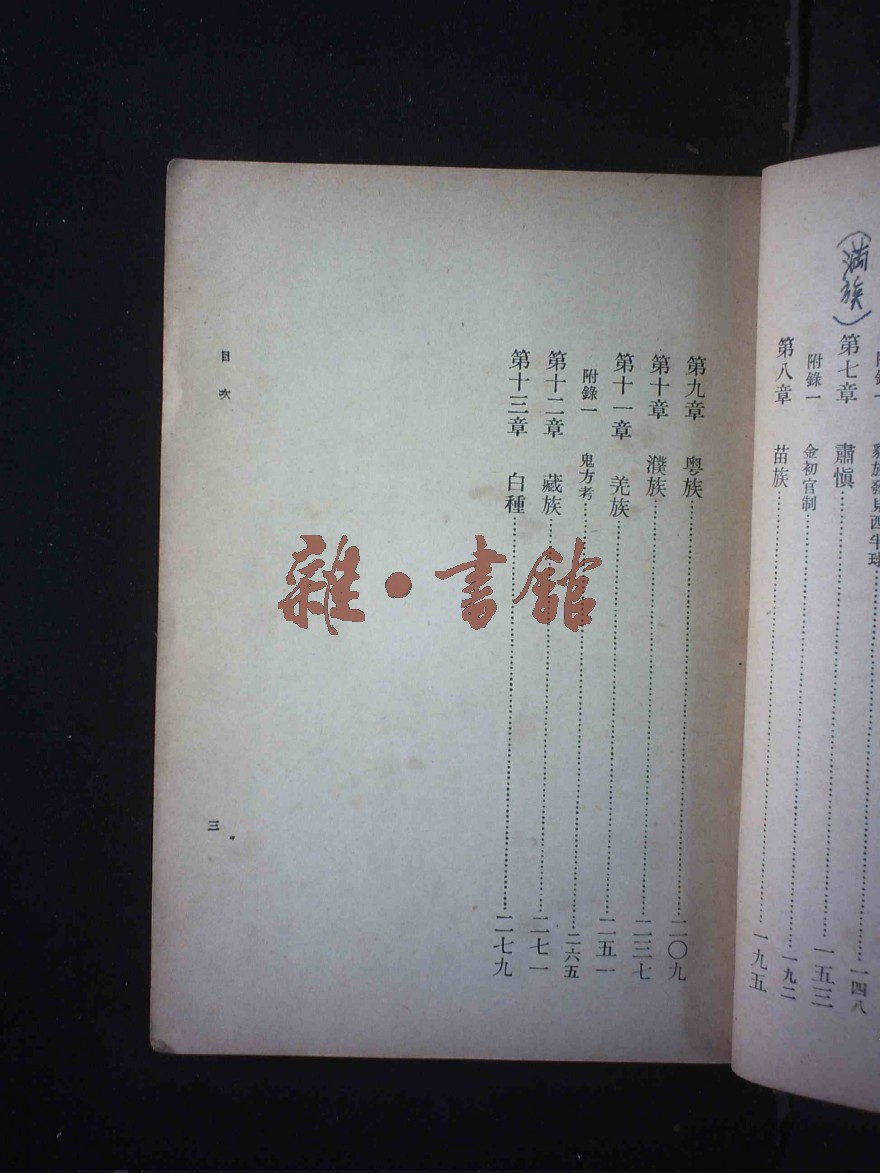 附錄一 豸族發見西半球……一四八
(満族)
第七章 肅愼……一五三
附錄一 金初官制……一九二
第八章 苗族……一九五
第九章 粵族……二〇九
第十章 濮族……二三七
第十一章 羌族……二五一
附錄一 鬼方考……二六五
第十二章 藏族……二七一
第十三章 白種……二七九
目次
三
雜·書館